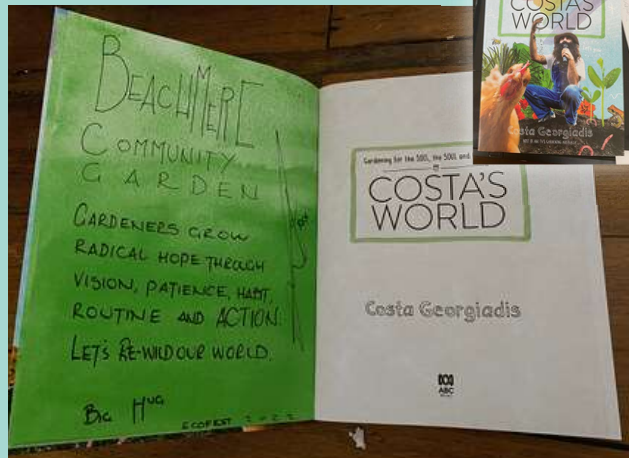 BEACHMERE
COMMUNITY
GARDEN
GARDENERS GROW
RADICAL HOPE THROUGH
VISION, PATIENCE, HABIT,
ROUTINE AND ACTION.
LET'S RE-WILD OUR WORLD.
BIG HUG
ECOFEST 2022
Gardening for the SOIL, the SOUL and
COSTA'S
WORLD
Costa Georgiadis
ABC
COSTA'S
WORLD
Costa Georgiadis